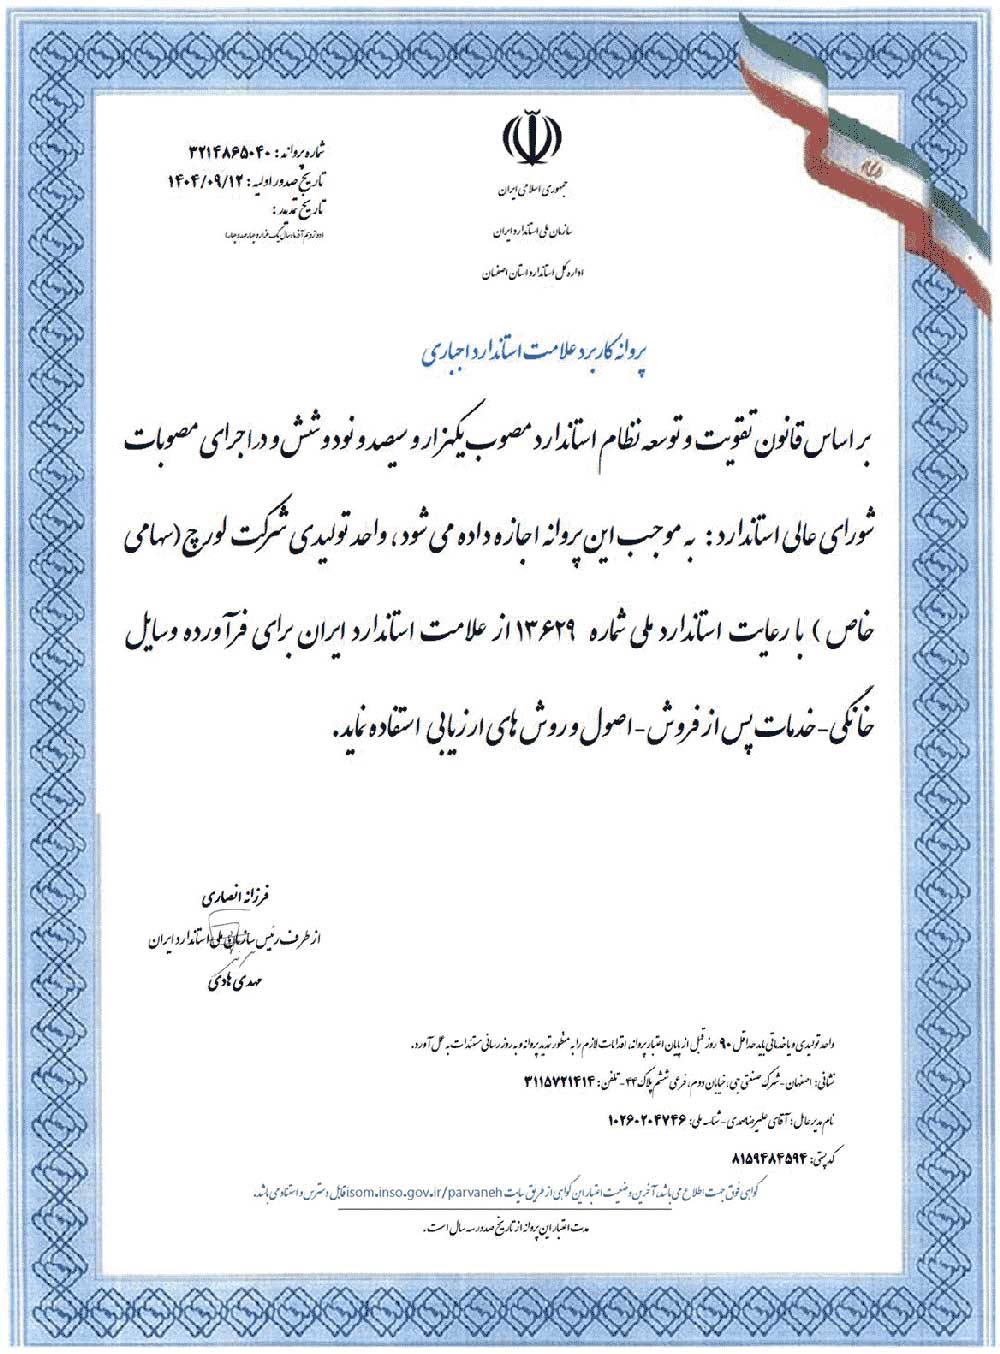 جمهوری اسلامی ایران
سازمان ملی استاندارد ایران
اداره کل استاندارد استان اصفهان
شماره پروانه : ۳۲۱۴۸۶۵۰۴۰
تاریخ صدور اولیه : ۱۴۰۴/۰۹/۱۲
تاریخ تمدید :
(دوازدهم آذر ماه سال یک هزار و چهارصد و چهار)
پروانه کاربرد علامت استاندارد اجباری
بر اساس قانون تقویت و توسعه نظام استاندارد مصوب یکهزار و سیصد و نود و شش و در اجرای مصوبات
شورای عالی استاندارد : به موجب این پروانه اجازه داده می شود، واحد تولیدی شرکت لورچ (سهامی
خاص ) با رعایت استاندارد ملی شماره ۱۳۶۲۹ از علامت استاندارد ایران برای فرآورده وسایل
خانگی-خدمات پس از فروش-اصول و روش های ارزیابی استفاده نماید.
فرزانه انصاری
از طرف رئیس سازمان ملی استاندارد ایران
مهدی هادی
واحد تولیدی و یا خدماتی باید حداقل ۹۰ روز قبل از پایان اعتبار پروانه، اقدامات لازم را به منظور تمدید پروانه و به روز رسانی مستندات به عمل آورد.
نشانی: اصفهان -شهرک صنعتی جی، خیابان دوم، فرعی ششم پلاک ۴۴- تلفن : ۳۱۱۵۷۲۱۴۱۴
نام مدیرعامل : آقای علیرضا صمدی - شناسه ملی: ۱۰۲۶۰۲۰۴۷۴۶
کد پستی: ۸۱۵۹۴۸۴۵۹۴
گواهی فوق جهت اطلاع می باشد، آخرین وضعیت اعتبار این گواهی از طریق سایت isom.inso.gov.ir/parvaneh قابل دسترس و استناد می باشد.
مدت اعتبار این پروانه از تاریخ صدور سه سال است .